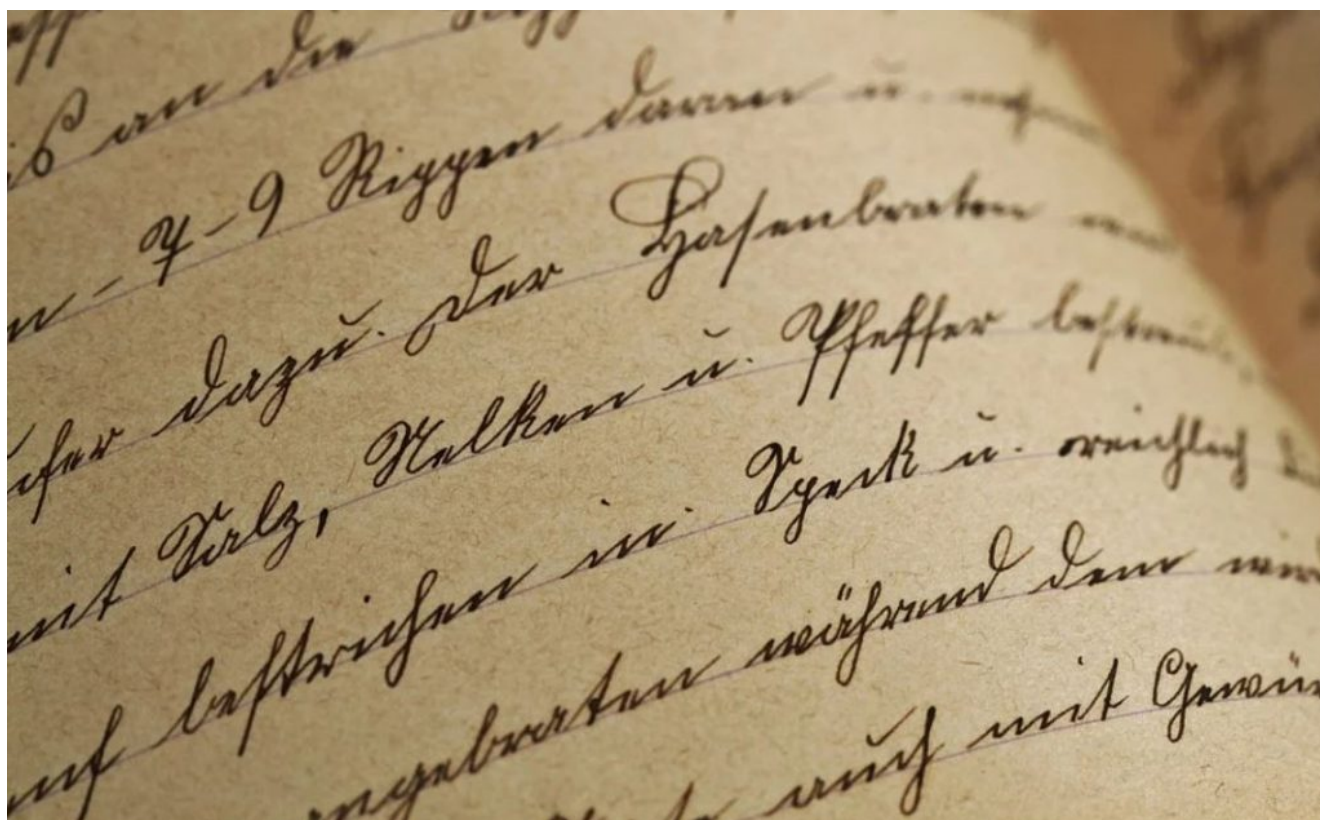 an die
7-9 Rippen daran u.
dazu. Der Hasenbraten
mit Salz, Nelken u. Pfeffer bestreut
bestrichen in Speck u. reichlich
angebraten während dem
auch mit Gewü